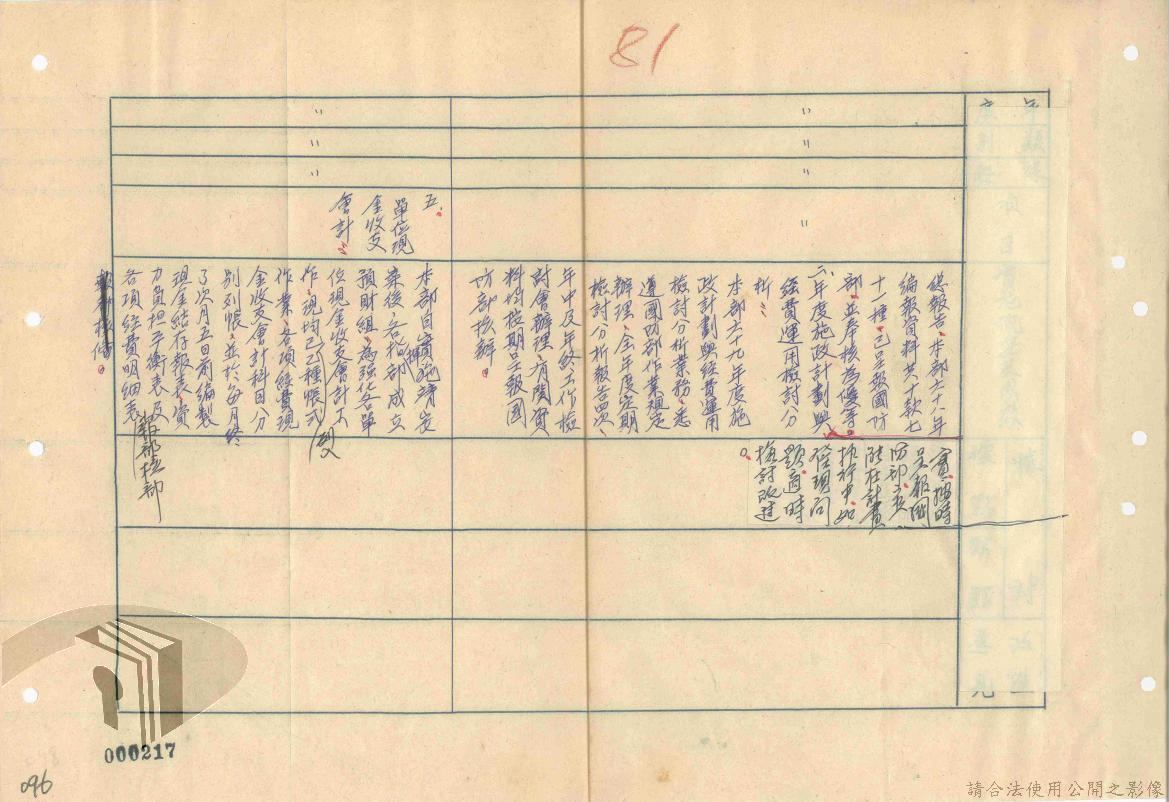 81
年度
〃
〃
〃
〃
〃
〃
〃
〃
總報告、本部六十八年
編報資料共十款七
十一種、已呈報國防
部、並奉核為優等。
二、年度施政計劃與
經費運用檢討分
析：
本部六十九年度施
政計劃與經費運用
檢討分析業務、悉
遵國防部作業規定
辦理、全年度定期
檢討分析報告四次、
年中及年終工作檢
討會辦理、有關資
料均按期呈報國
防部核辦。
實施時
呈報國
防部
能在計畫
執行中、如
發現問
題、適時
檢討改進
。
五、
單位現
金收支
會計：
本部自實施靖安
案後、各指部成立
預財組、為強化各單
位現金收支會計工
作、現均已
種帳式
作業、各項經費現
金收支會計科目分
別列帳、並於每月終
了次月五日前編製
現金結存報表、資
力負担平衡表及
各項經費明細表
報部核備。
000217
096
請合法使用公開之影像